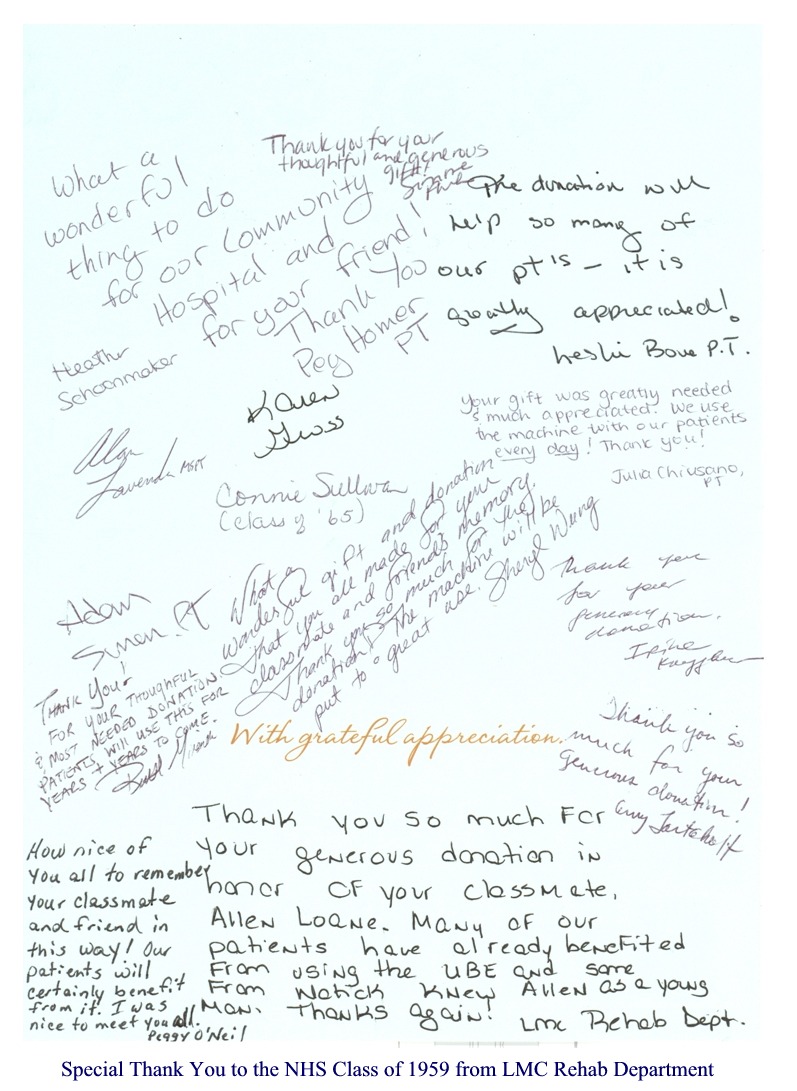 Thank you for your
thoughtful and generous
gift!
Suzanne
What a
wonderful
thing to do
for our Community
Hospital and
for your friend!
Thank You
Peg Homer
PT
The donation will
help so many of
our pt's – it is
greatly appreciated!
Leslie Bove P.T.
Heather
Schoonmaker
Karen
Gross
Your gift was greatly needed
& much appreciated. We use
the machine with our patients
every day! Thank you!
Julia Chiusano,
PT
Alan
Lavender MSPT
Connie Sullivan
(Class of '65)
What a
wonderful gift and donation
that you all made for your
classmate and friend's memory.
Thank you so much for the
donation! The machine will be
put to a great use. Sheryl Wung
Thank you
for your
generous
donation.
Irina
Adam
Simon, PT
Thank You!
FOR YOUR THOUGHTFUL
& MOST NEEDED DONATION.
PATIENTS WILL USE THIS FOR
YEARS & YEARS TO COME.
With grateful appreciation.
Thank you so
much for your
generous donation!
Amy
How nice of
you all to remember
your classmate
and friend in
this way! Our
patients will
certainly benefit
from it. I was
nice to meet you all.
Peggy O'Neil
Thank you so much For
your generous donation in
honor OF your classmate,
Allen Loane. Many of our
patients have already benefited
From using the UBE and some
From Natick knew Allen as a young
Man. Thanks again!
LMC Rehab Dept.
Special Thank You to the NHS Class of 1959 from LMC Rehab Department